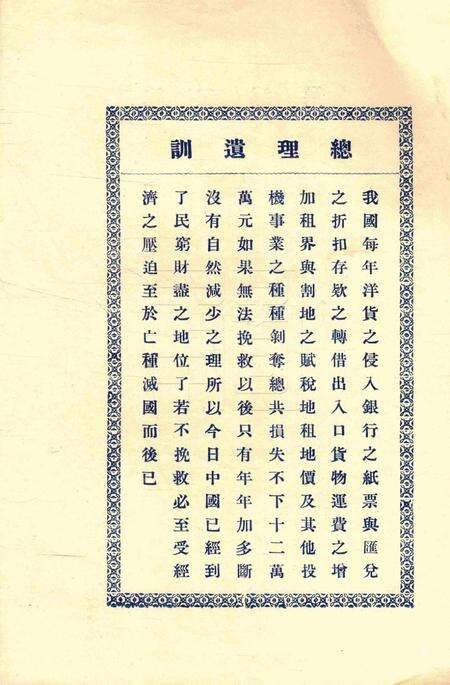 總理遺訓
我國每年洋貨之侵入銀行之紙票與匯兌
之折扣存欵之轉借出入口貨物運費之增
加租界與割地之賦稅地租地價及其他投
機事業之種種剝奪總共損失不下十二萬
萬元如果無法挽救以後只有年年加多斷
沒有自然減少之理所以今日中國已經到
了民窮財盡之地位了若不挽救必至受經
濟之壓迫至於亡種滅國而後已